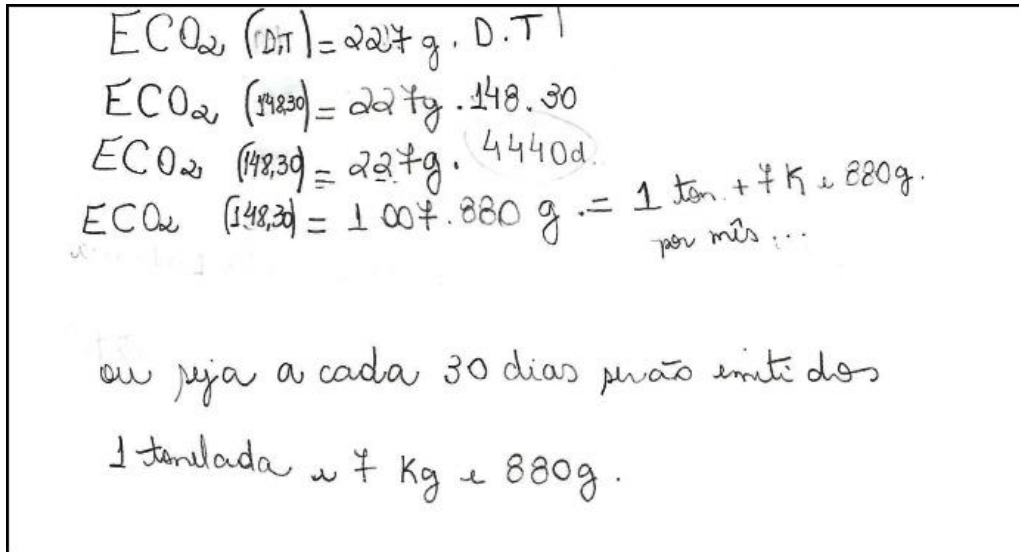 ECO₂ (D,T) = 227 g . D.T
ECO₂ (148,30) = 227g . 148 . 30
ECO₂ (148,30) = 227g. 4440d.
ECO₂ (148,30) = 1 007.880 g .= 1 ton. + 7 K e 880g.
por mês...
ou seja a cada 30 dias serão emitidos
1 tonelada e 7 Kg e 880g.